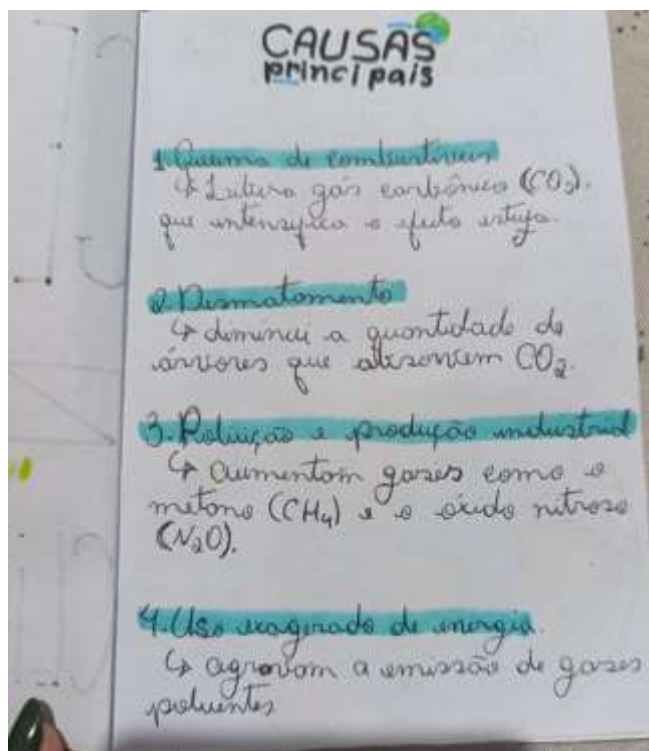 CAUSAS
principais
1. Queima de combustíveis
↳ Libera gás carbônico (CO₂).
que intensifica o efeito estufa.
2. Desmatamento
↳ diminui a quantidade de
árvores que absorvem CO₂.
3. Poluição e produção industrial
↳ Aumentam gases como o
metano (CH₄) e o óxido nitroso
(N₂O).
4. Uso exagerado de energia.
↳ agravam a emissão de gases
poluentes